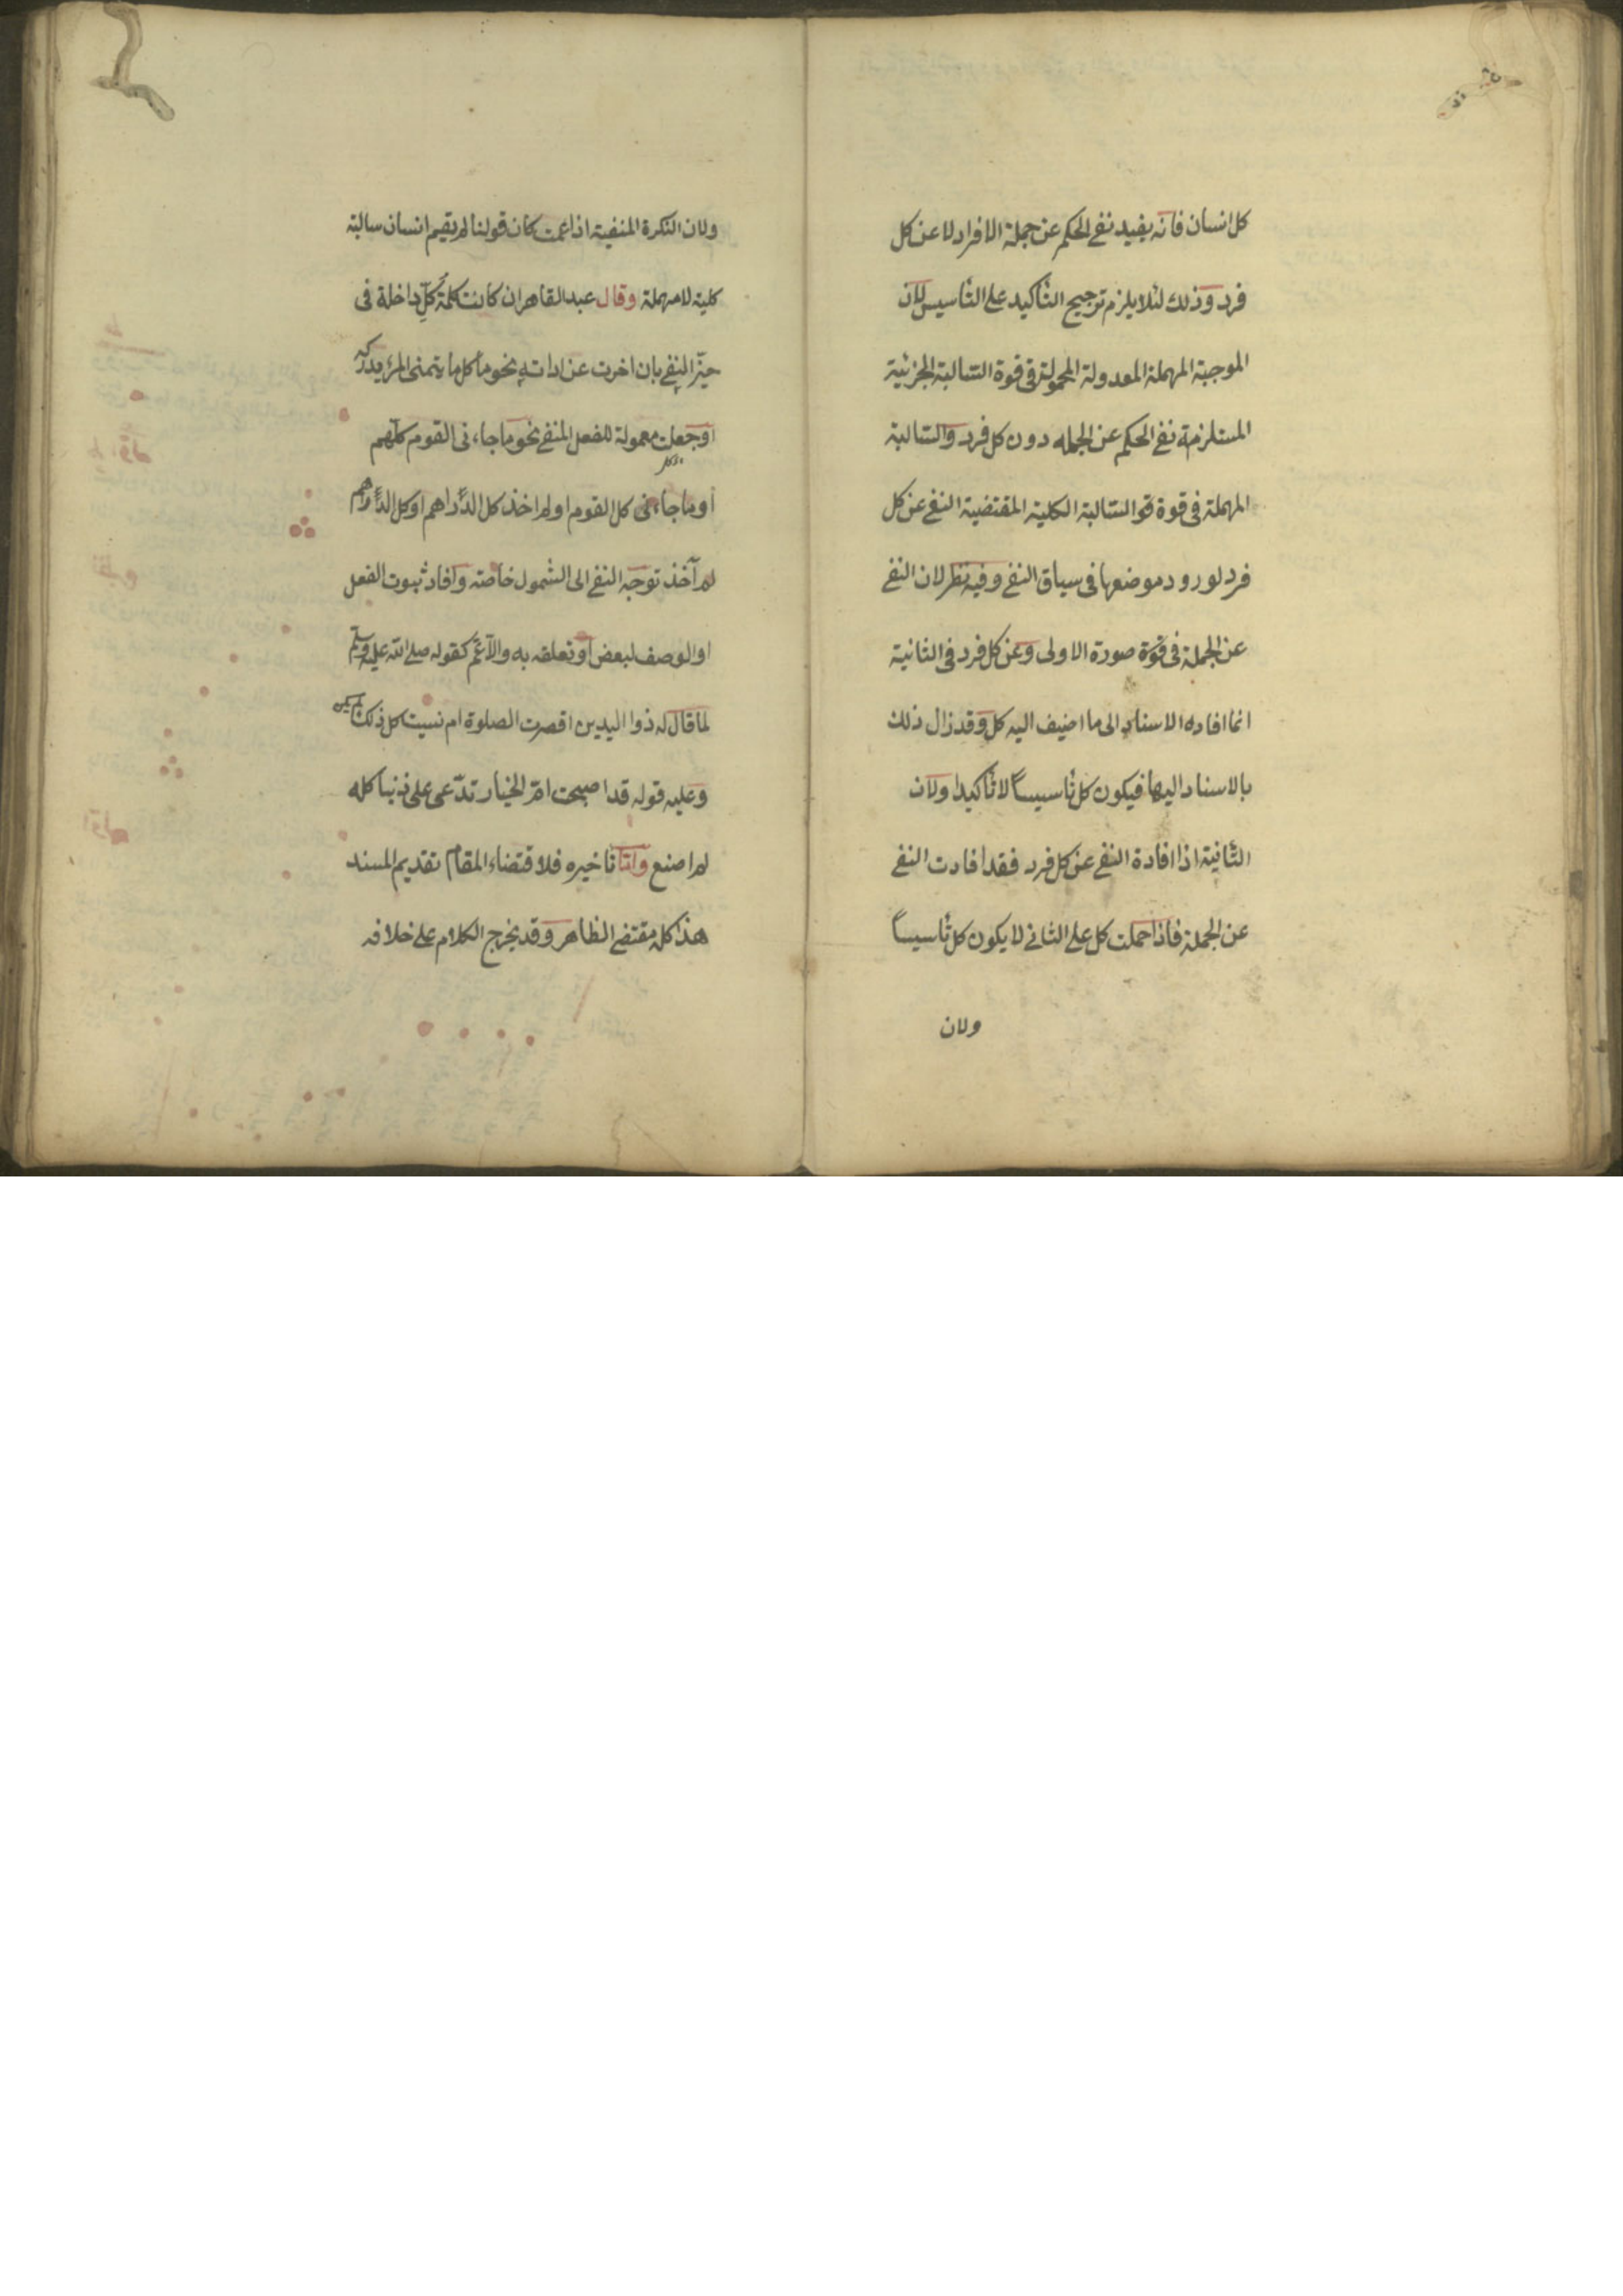 كل انسان فانه يفيد نفى الحكم عن جملة الافراد لا عن كل
فرد وذلك لئلا يلزم ترجيح التأكيد على التأسيس لان
الموجبة المهملة المعدولة المحمولة فى قوة السّالبة الجزئية
المستلزمة نفى الحكم عن الجمله دون كل فرد والسّالبة
المهملة فى قوة السّالبة الكلية المقتضية النفى عن كل
فرد لورود موضعها فى سياق النفى وفيه نظر لان النفى
عن الجملة فى صورة الاولى وعن كل فرد فى الثانية
انما افاده الاسناد الى ما اضيف اليه كل وقد زال ذلك
بالاسناد اليها فيكون كل تأسيساً لا تأكيدا ولان
الثّانية اذا افادة النفى عن كل فرد فقد افادت النفى
عن الجملة فاذا حملت كل على الثانى لا يكون كل تأسيساً
ولان
ولان النكرة المنفية اذا عمت كان قولنا لم يقم انسان سالبة
كلية لا مهملة وقال عبد القاهر ان كانت كلمة كل داخلة فى
حيّز النفى بان اخرت عن اداته نحو ما كل ما يتمنى المرء يدركه
او جعلت معمولة للفعل المنفى نحو ما جاءنى القوم كلّهم
او ما جاءنى كل القوم او لم اخذ كل الدّراهم او كل الدّراهم
لم آخذ توجّه النفى الى الشمول خاصّة وافاد ثبوت الفعل
او الوصف لبعض او تعلقه به والّا عمّ كقوله صلى الله عليه وسلم
لما قال له ذوا اليدين اقصرت الصلوة ام نسيت كل ذلك لم يكن
وعليه قوله قد اصبحت امّ الخيار تدّعى على ذنبا كله
لم اصنع وامّا تاخيره فلاقتضاء المقام تقديم المسند
هذا كله مقتضى الظاهر وقد يخرج الكلام على خلافه